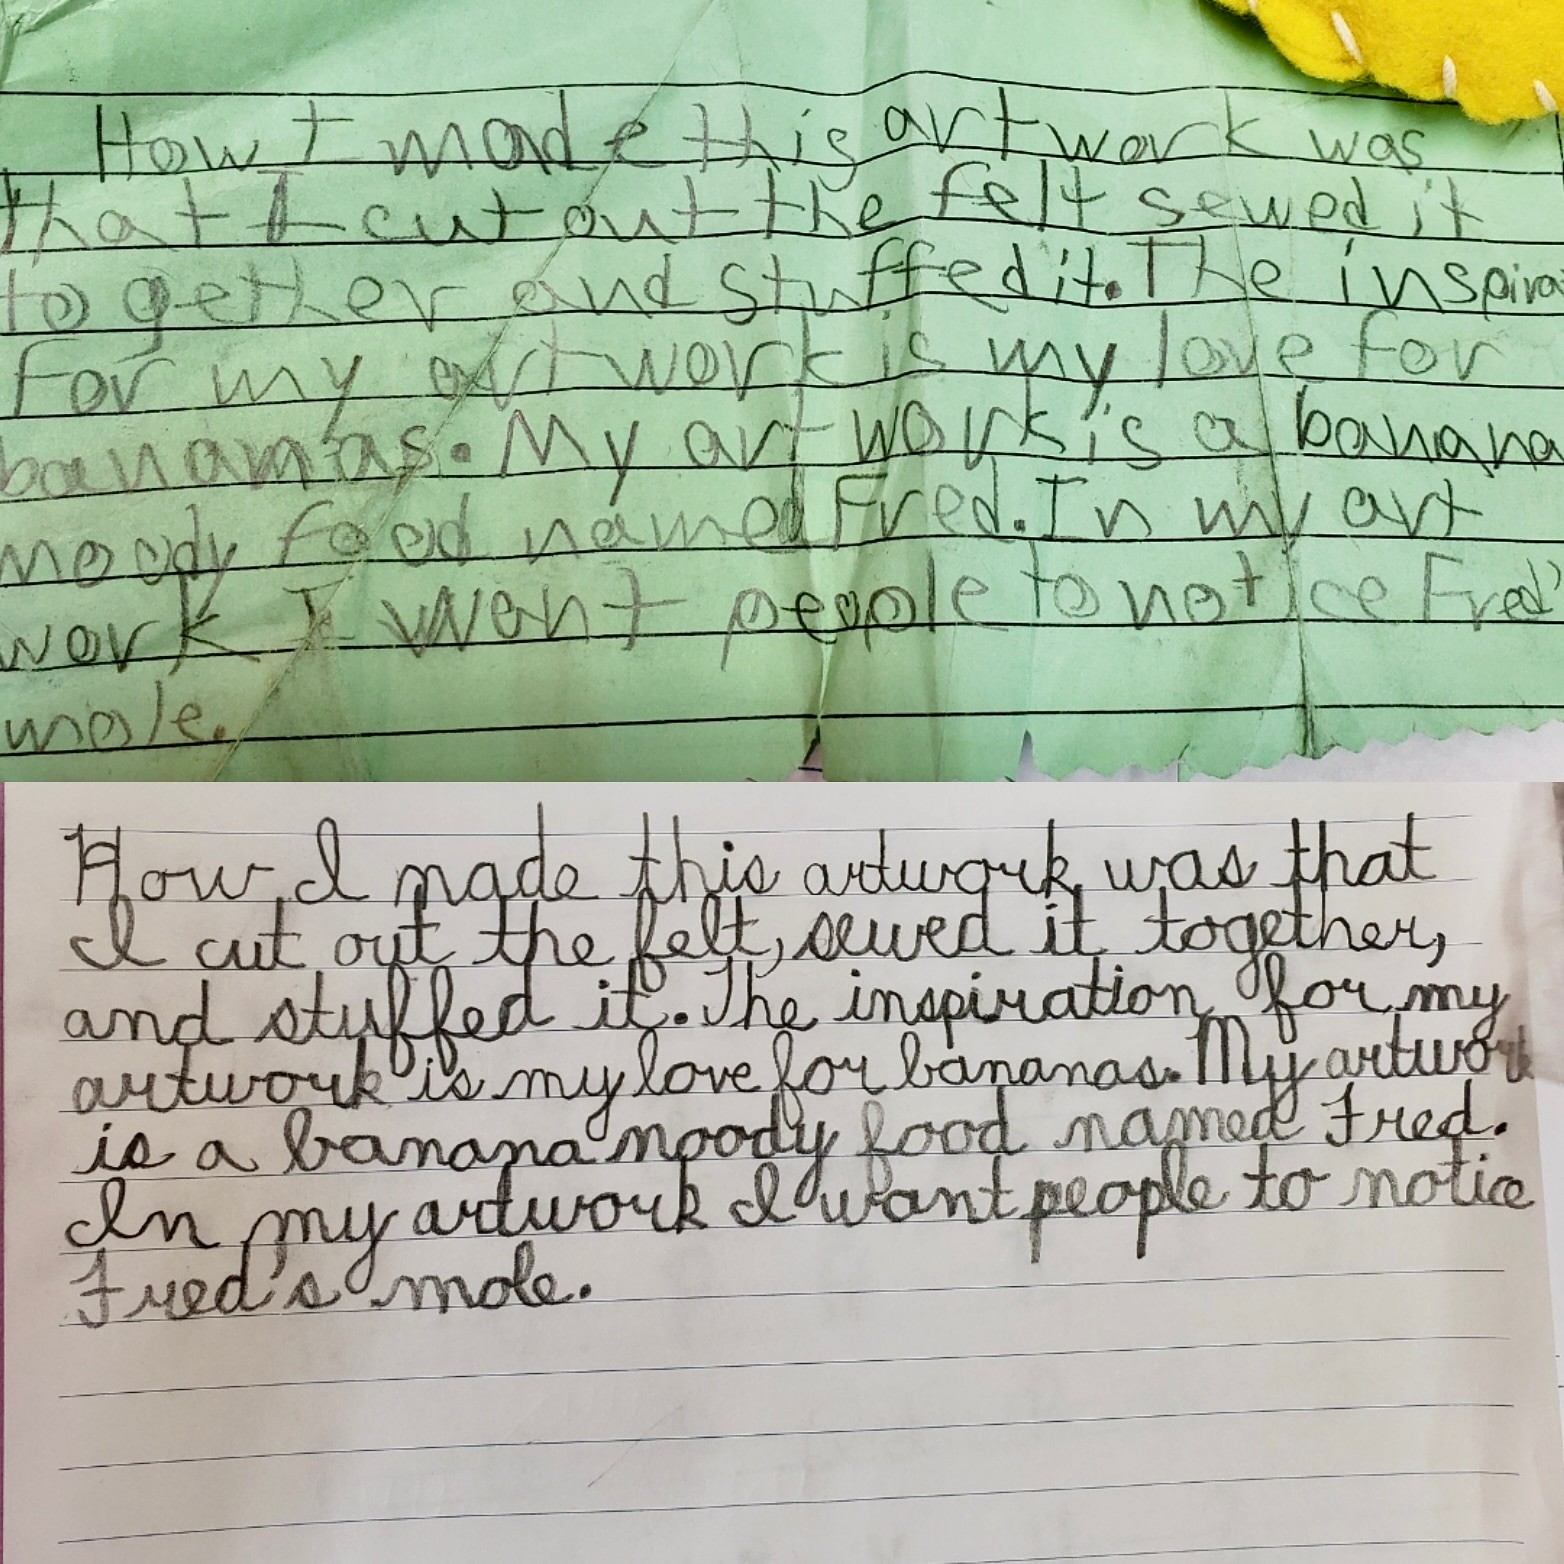 How I made this art work was
that I cut out the felt sewed it
together and stuffed it. The inspira
for my art work is my love for
bananas. My art work is a banana
moody food named Fred. In my art
work I want people to notice Fred's
mole.
How I made this artwork was that
I cut out the felt, sewed it together,
and stuffed it. The inspiration for my
artwork is my love for bananas. My artwork
is a banana moody food named Fred.
In my artwork I want people to notice
Fred's mole.